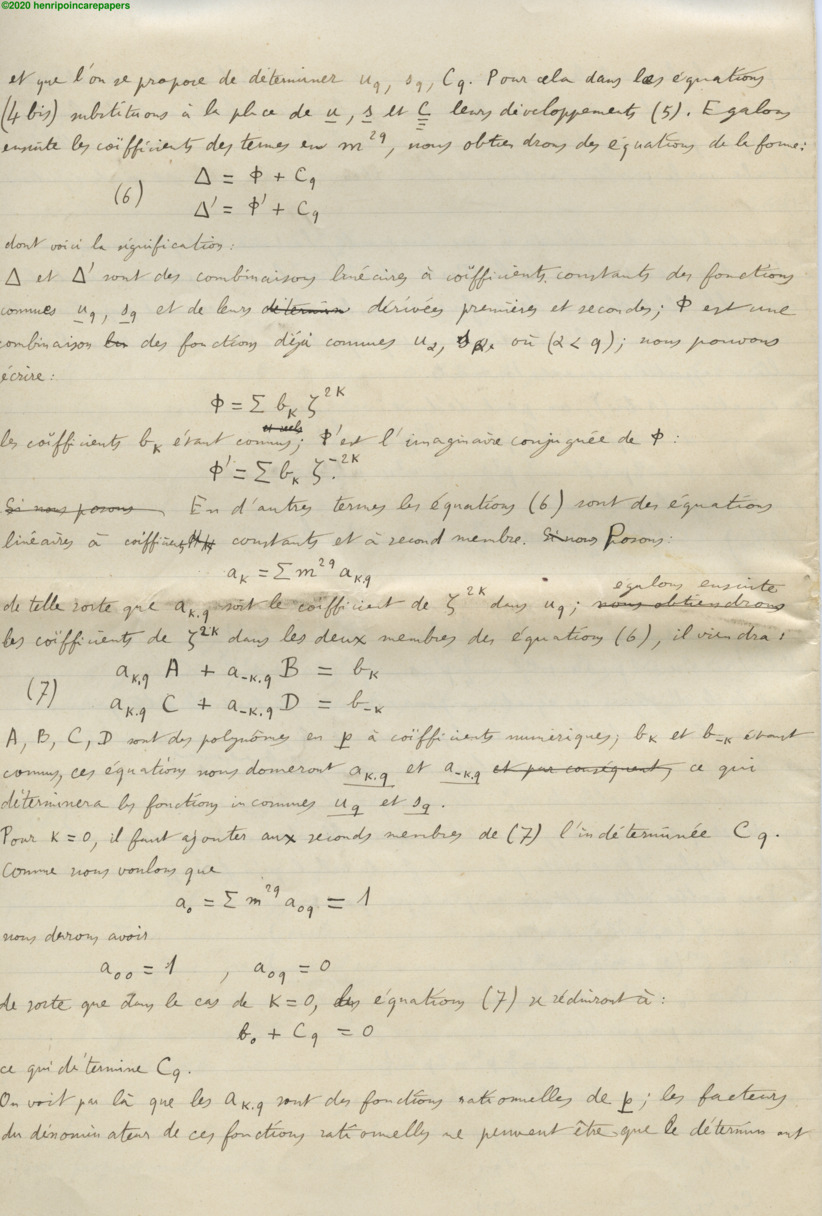 ©2020 henripoincarepapers
et que l'on se propose de déterminer u_q, s_q, C_q. Pour cela dans les équations
(4 bis) substituons à la place de u, s et C leurs développements (5). Egalons
ensuite les coïfficients des termes en m^{2q}, nous obtiendrons des équations de la forme:
(6) Δ = Φ + C_q
Δ' = Φ' + C_q
dont voici la signification:
Δ et Δ' sont des combinaisons linéaires à coïfficients constants des fonctions
connues u_q, s_q et de leurs détermin dérivées premières et secondes; Φ est une
combinaison lin des fonctions déjà connues u_α, s_α, où (α < q); nous pouvons
écrire:
Φ = Σ b_K ζ^{2K}
et réels
les coïfficients b_K étant connus; Φ' est l'imaginaire conjuguée de Φ:
Φ' = Σ b_K ζ^{-2K}.
Si nous posons En d'autres termes les équations (6) sont des équations
linéaires à coïfficients constants et à second membre. Si nous Posons:
a_K = Σ m^{2q} a_{K.q}
egalons ensuite
de telle sorte que a_{K.q} soit le coïfficient de ζ^{2K} dans u_q; nous obtiendrons
les coïfficients de ζ^{2K} dans les deux membres des équations (6), il viendra:
(7) a_{K.q} A + a_{-K.q} B = b_K
a_{K.q} C + a_{-K.q} D = b_{-K}
A, B, C, D sont des polynômes en p à coïfficients numériques; b_K et b_{-K} étant
connus, ces équations nous donneront a_{K.q} et a_{-K.q} et par conséquent, ce qui
déterminera les fonctions inconnues u_q et s_q.
Pour K = 0, il faut ajouter aux seconds membres de (7) l'indéterminée C_q.
Comme nous voulons que
a_0 = Σ m^{2q} a_{0q} = 1
nous devrons avoir
a_{00} = 1 , a_{0q} = 0
de sorte que dans le cas de K = 0, les équations (7) se réduiront à:
b_0 + C_q = 0
ce qui détermine C_q.
On voit par là que les a_{K.q} sont des fonctions rationnelles de p; les facteurs
du dénominateur de ces fonctions rationnelles ne peuvent être que le déterminant